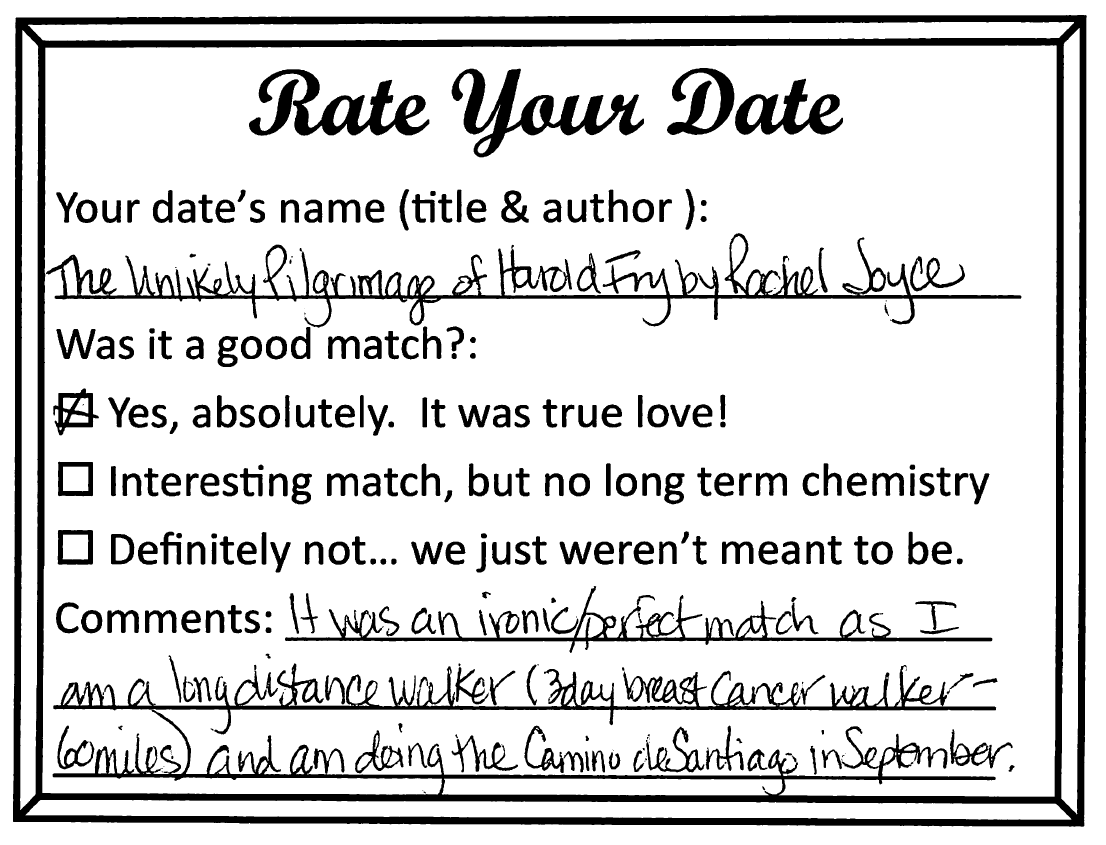 Rate Your Date
Your date's name (title & author ):
The Unlikely Pilgrimage of Harold Fry by Rachel Joyce
Was it a good match?:
☒ Yes, absolutely. It was true love!
☐ Interesting match, but no long term chemistry
☐ Definitely not... we just weren't meant to be.
Comments: It was an ironic/perfect match as I
am a long distance walker (3day breast cancer walker -
60miles) and am doing the Camino de Santiago in September.